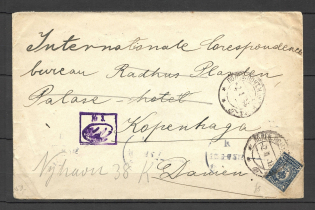 Internationale Corespondence
bureau Radhus Pladsen
Palase-hotel
№ X
Kopenhaga
Nyhavn 38 K
Danien